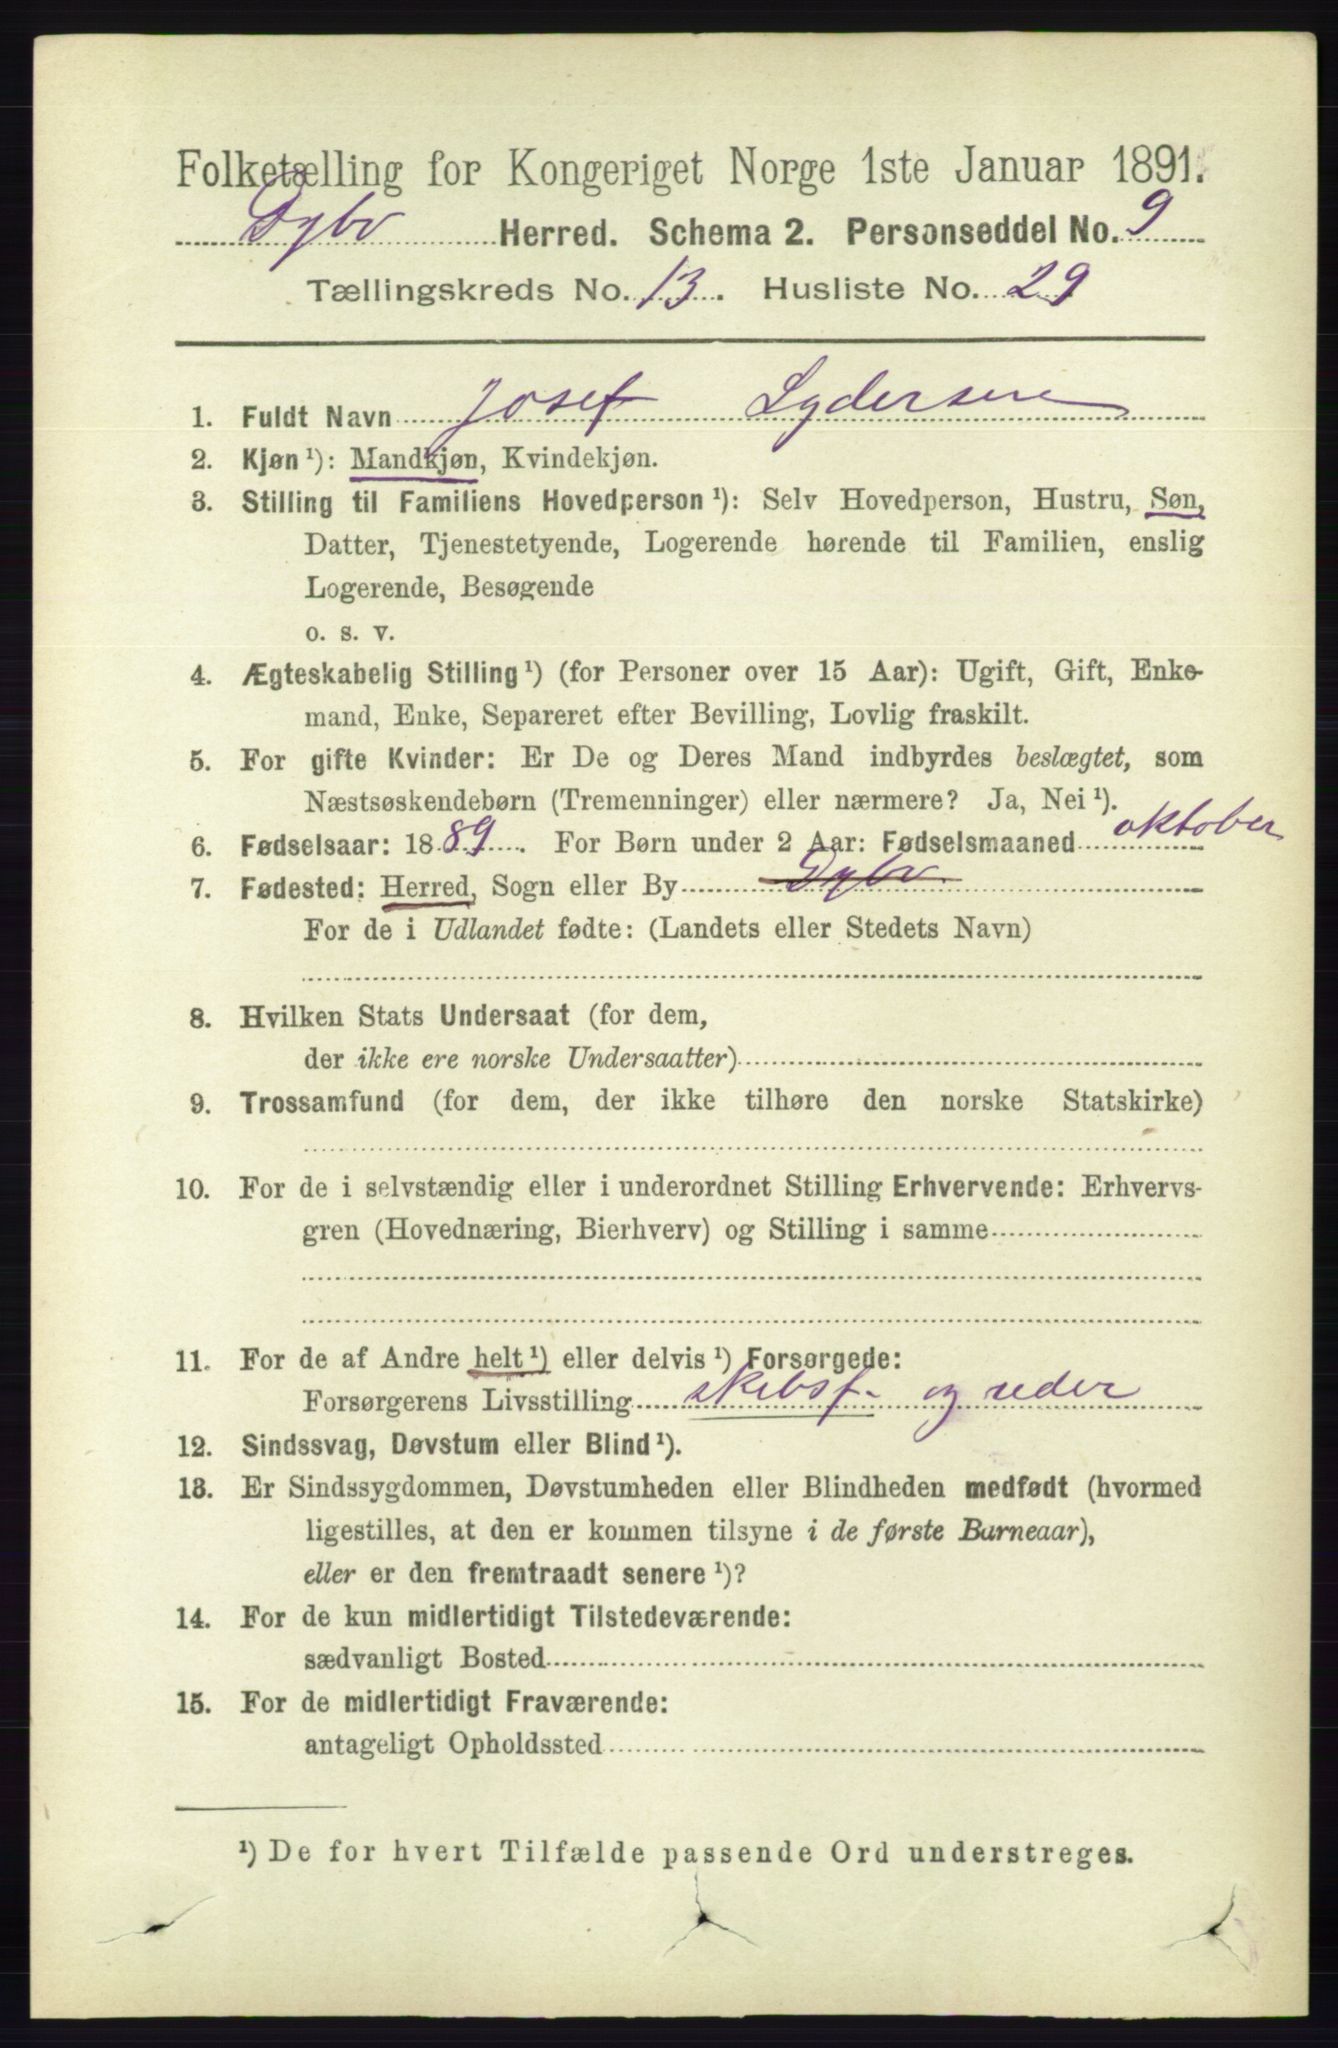 Folketælling for Kongeriget Norge 1ste Januar 1891.
Dybv Herred. Schema 2. Personseddel No. 9
Tællingskreds No. 13. Husliste No. 29
1. Fuldt Navn Josef Lydersen
2. Kjøn ¹): Mandkjøn, Kvindekjøn.
3. Stilling til Familiens Hovedperson ¹): Selv Hovedperson, Hustru, Søn,
Datter, Tjenestetyende, Logerende hørende til Familien, enslig
Logerende, Besøgende
o. s. v.
4. Ægteskabelig Stilling ¹) (for Personer over 15 Aar): Ugift, Gift, Enke-
mand, Enke, Separeret efter Bevilling, Lovlig fraskilt.
5. For gifte Kvinder: Er De og Deres Mand indbyrdes beslægtet, som
Næstsøskendebørn (Tremenninger) eller nærmere? Ja, Nei ¹).
6. Fødselsaar: 1889. For Børn under 2 Aar: Fødselsmaaned oktober
7. Fødested: Herred, Sogn eller By Dybv
For de i Udlandet fødte: (Landets eller Stedets Navn)
8. Hvilken Stats Undersaat (for dem,
der ikke ere norske Undersaatter)
9. Trossamfund (for dem, der ikke tilhøre den norske Statskirke)
10. For de i selvstændig eller i underordnet Stilling Erhvervende: Erhvervs-
gren (Hovednæring, Bierhverv) og Stilling i samme
11. For de af Andre helt ¹) eller delvis ¹) Forsørgede:
Forsørgerens Livsstilling skibsf. og reder
12. Sindssvag, Døvstum eller Blind ¹).
13. Er Sindssygdommen, Døvstumheden eller Blindheden medfødt (hvormed
ligestilles, at den er kommen tilsyne i de første Barneaar),
eller er den fremtraadt senere ¹)?
14. For de kun midlertidigt Tilstedeværende:
sædvanligt Bosted
15. For de midlertidigt Fraværende:
antageligt Opholdssted
¹) De for hvert Tilfælde passende Ord understreges.